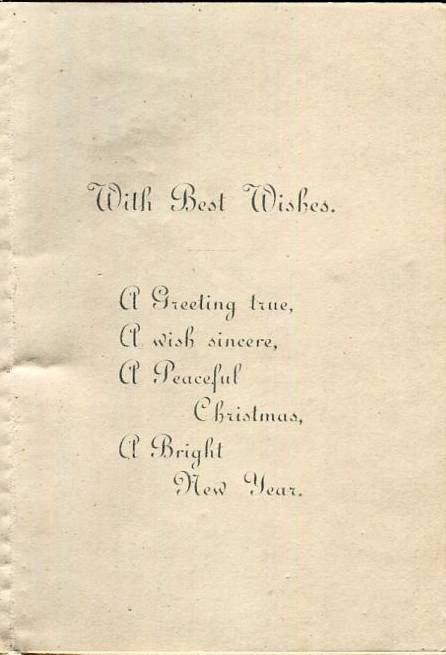 With Best Wishes.
A Greeting true,
A wish sincere,
A Peaceful
Christmas,
A Bright
New Year.